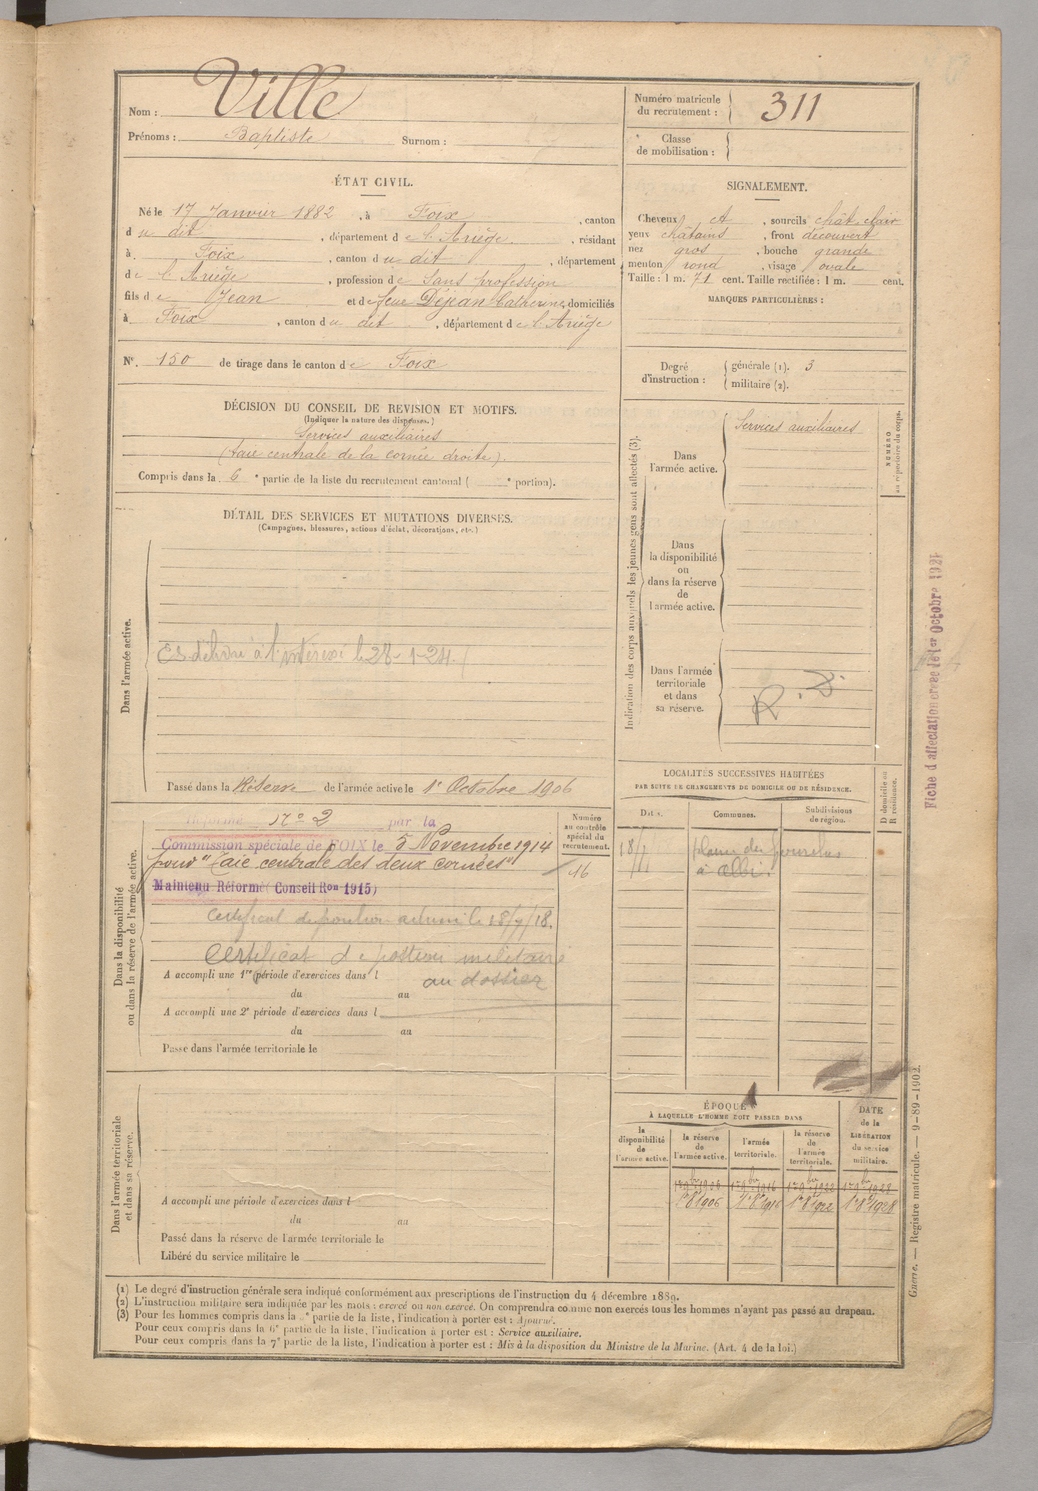 Nom : Ville
Prénoms : Baptiste Surnom :
Numéro matricule
du recrutement : 311
Classe
de mobilisation :
ÉTAT CIVIL.
Né le 17 Janvier 1882, à Foix, canton
du dit, département de l'Ariège, résidant
à Foix, canton du dit, département
de l'Ariège, profession de Sans profession
fils de Jean et de feue Déjean Catherine, domiciliés
à Foix, canton du dit, département de l'Ariège
N° 150 de tirage dans le canton de Foix
SIGNALEMENT.
Cheveux et, sourcils chât. clair
yeux châtains, front découvert
nez gros, bouche grande
menton rond, visage ovale
Taille : 1 m. 71 cent. Taille rectifiée : 1 m. cent.
MARQUES PARTICULIÈRES :
Degré
d'instruction :
générale (1). 3
militaire (2).
DÉCISION DU CONSEIL DE REVISION ET MOTIFS.
(Indiquer la nature des dispenses.)
Services auxiliaires
(taie centrale de la cornée droite).
Compris dans la 6e partie de la liste du recrutement cantonal ( e portion).
DÉTAIL DES SERVICES ET MUTATIONS DIVERSES.
(Campagnes, blessures, actions d'éclat, décorations, etc.)
Dans l'armée active.
Es délivré à l'intéressé le 28-1-24.
Passé dans la Réserve de l'armée active le 1er Octobre 1906
Indication des corps auxquels les jeunes gens sont affectés (3).
NUMÉRO
au répertoire du corps.
Dans
l'armée active.
Services auxiliaires
Dans
la disponibilité
ou
dans la réserve
de
l'armée active.
Dans l'armée
territoriale
et dans
sa réserve.
Fiche d'affectation créée le 1er Octobre 1921
Dans la disponibilité
ou dans la réserve de l'armée active.
Réformé n° 2 par la
Commission spéciale de FOIX le 5 Novembre 1914
pour "taie centrale des deux cornées"
Maintenu Réformé (Conseil Ron 1915)
Certificat de position 18/7/18.
Certificat de position militaire
au dossier
A accompli une 1re période d'exercices dans l
du au
A accompli une 2e période d'exercices dans l
du au
Passé dans l'armée territoriale le
Numéro
au contrôle
spécial du
recrutement.
16
LOCALITÉS SUCCESSIVES HABITÉES
PAR SUITE DE CHANGEMENTS DE DOMICILE OU DE RÉSIDENCE.
Dates.
Communes.
Subdivisions
de région.
D domicile ou
R résidence.
à Albi.
Dans l'armée territoriale
et dans sa réserve.
A accompli une période d'exercices dans l
du au
Passé dans la réserve de l'armée territoriale le
Libéré du service militaire le
ÉPOQUE
À LAQUELLE L'HOMME DOIT PASSER DANS
DATE
de la
LIBÉRATION
du service
militaire.
la
disponibilité
de
l'armée active.
la réserve
de
l'armée active.
l'armée
territoriale.
la réserve
de
l'armée
territoriale.
1er 9bre 1906 1er 9bre 1916 1er 9bre 1922 1er 9bre 1928
1er 8 1906 1er 8 1916 1er 8 1922 1er 8 1928
(1) Le degré d'instruction générale sera indiqué conformément aux prescriptions de l'instruction du 4 décembre 1889.
(2) L'instruction militaire sera indiquée par les mots : exercé ou non exercé. On comprendra comme non exercés tous les hommes n'ayant pas passé au drapeau.
(3) Pour les hommes compris dans la e partie de la liste, l'indication à porter est : Ajourné.
Pour ceux compris dans la 6e partie de la liste, l'indication à porter est : Service auxiliaire.
Pour ceux compris dans la 7e partie de la liste, l'indication à porter est : Mis à la disposition du Ministre de la Marine. (Art. 4 de la loi.)
Guerre. — Registre matricule. — 9-89-1902.